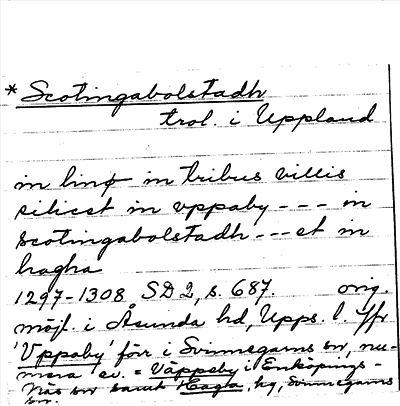 * Scotingabolstadh
trol. i Uppland
in linø in tribus villis
silicet in vppaby --- in
scotingabolstadh --- et in
hagha
1297-1308 SD 2, s. 687. orig.
möjl. i Åsunda hd, Upps. l. Jfr
'Vppaby' förr i Svinnegarns sn, nu-
mera ev. = Väppeby i Enköpings-
Näs sn samt Haga, hg, Svinnegarns
sn.